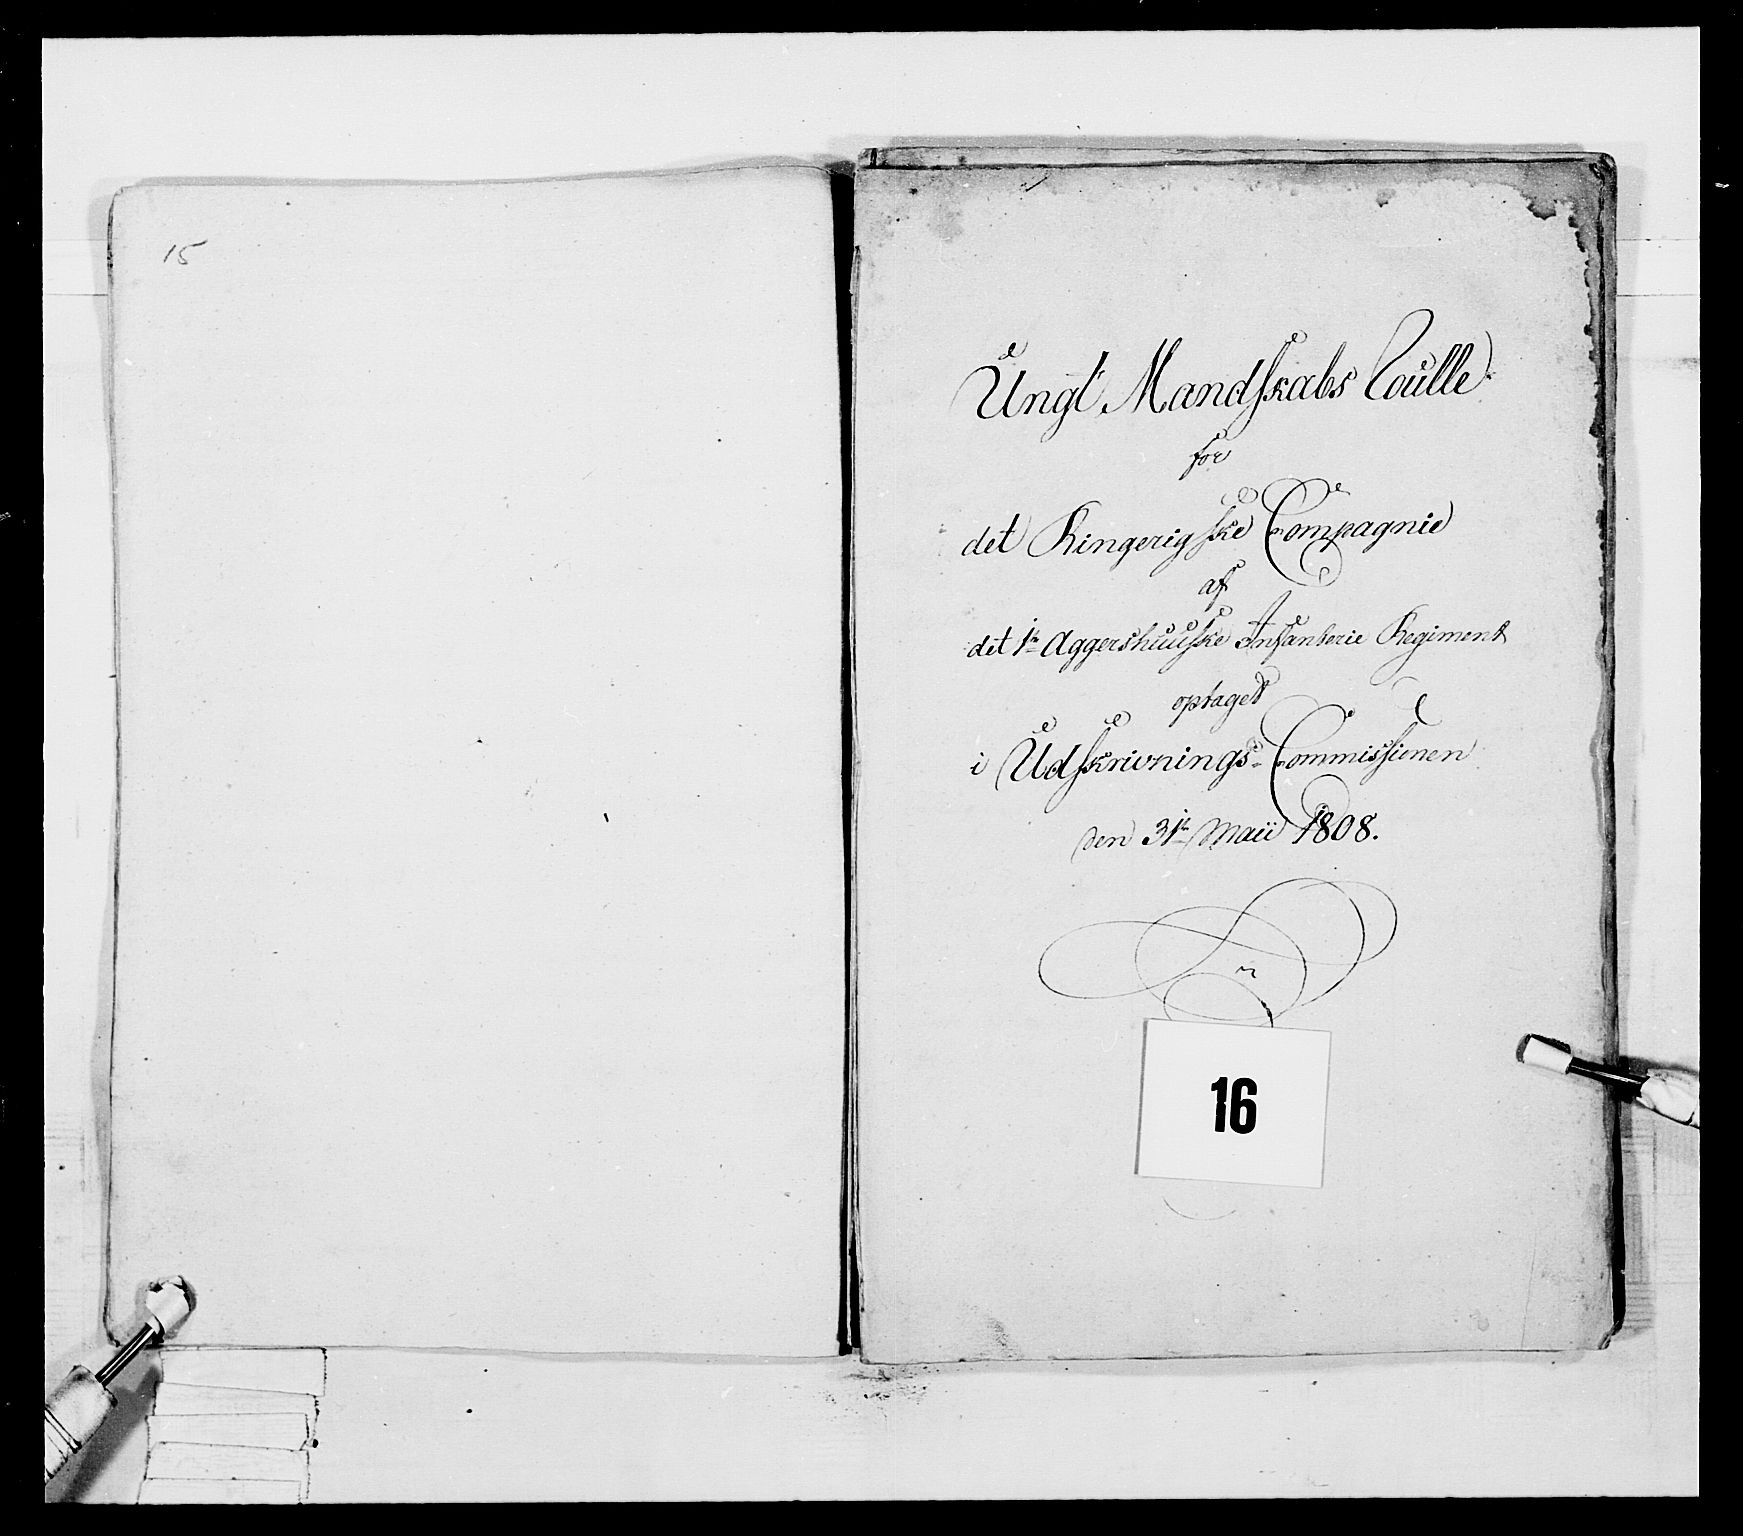 15
Ungt Mandskabs Roulle
for
det Ringerigske Compagnie
af
det 1te Aggershuuske Infanterie Regiment
optaget
i Udskrivnings-Commissionen
den 31te Maii 1808.
16